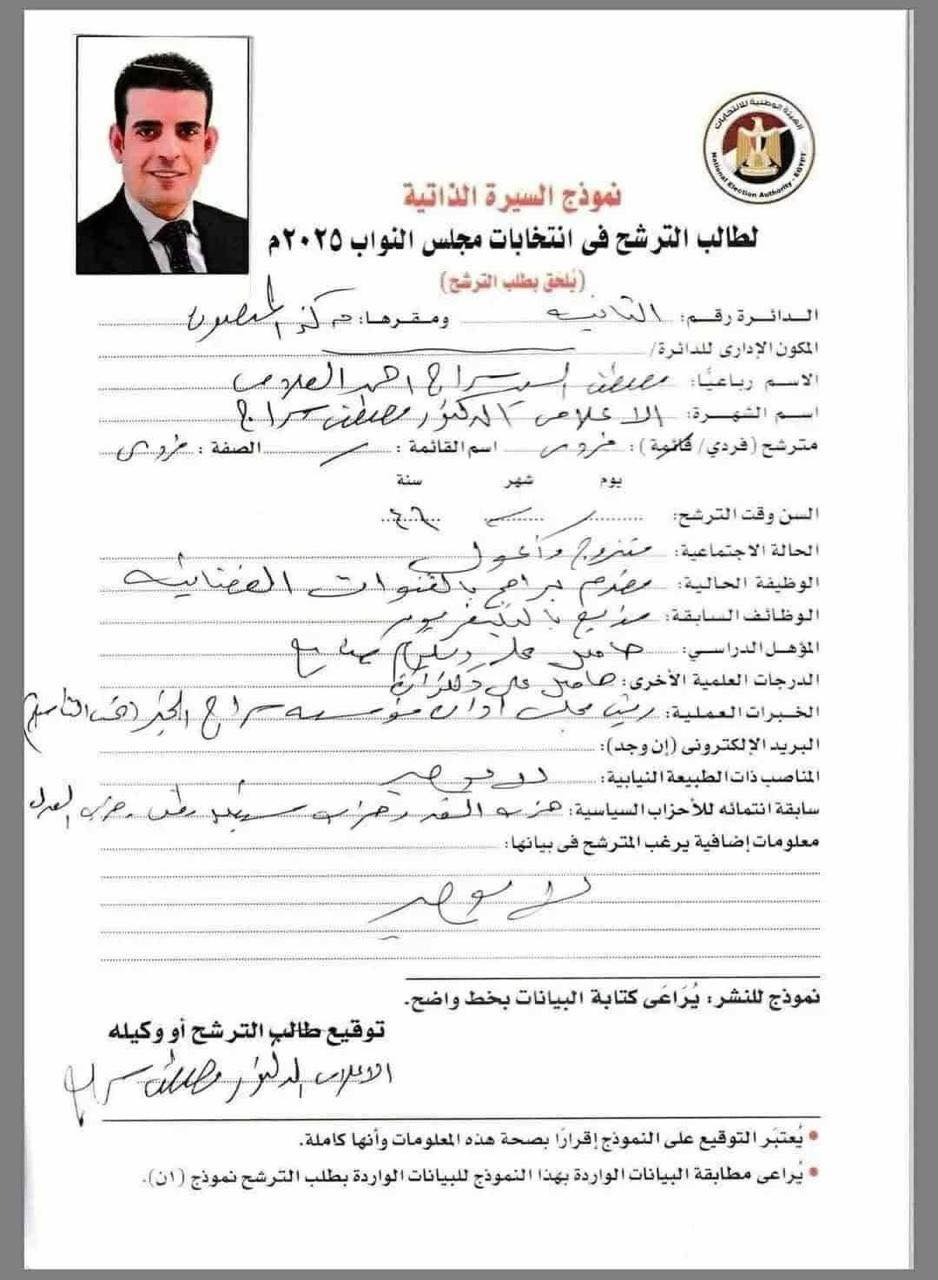 الهيئة الوطنية للانتخابات
National Election Authority - EGYPT
نموذج السيرة الذاتية
لطالب الترشح فى انتخابات مجلس النواب ٢٠٢٥م
(يُلحَق بطلب الترشح)
الدائرة رقم: الثانية ومقرها: مركز المنصورة
المكون الإدارى للدائرة/
الاسم رباعيًا: مصطفى السيد سراج احمد
اسم الشهرة: الاعلامى الدكتور مصطفى سراج
مترشح (فردي/ قائمة): فردى اسم القائمة: الصفة: فردى
يوم شهر سنة
السن وقت الترشح: ٤٦
الحالة الاجتماعية: متزوج وأعول
الوظيفة الحالية: مقدم برامج بالقنوات الفضائية
الوظائف السابقة: مذيع بالتليفزيون
المؤهل الدراسي: حاصل على دبلوم صنايع
الدرجات العلمية الأخرى: حاصل على دكتوراة
الخبرات العملية: رئيس مجلس ادارة مؤسسة سراج الخير
البريد الإلكترونى (إن وجد):
المناصب ذات الطبيعة النيابية: لا يوجد
سابقة انتمائه للأحزاب السياسية: حزب وحزب مستقبل وطن وحزب العدل
معلومات إضافية يرغب المترشح فى بيانها:
لا يوجد
نموذج للنشر: يُرَاعَى كتابة البيانات بخط واضح.
توقيع طالب الترشح أو وكيله
الاعلامى الدكتور مصطفى سراج
• يُعتبَر التوقيع على النموذج إقرارًا بصحة هذه المعلومات وأنها كاملة.
• يُراعى مطابقة البيانات الواردة بهذا النموذج للبيانات الواردة بطلب الترشح نموذج (١ن).